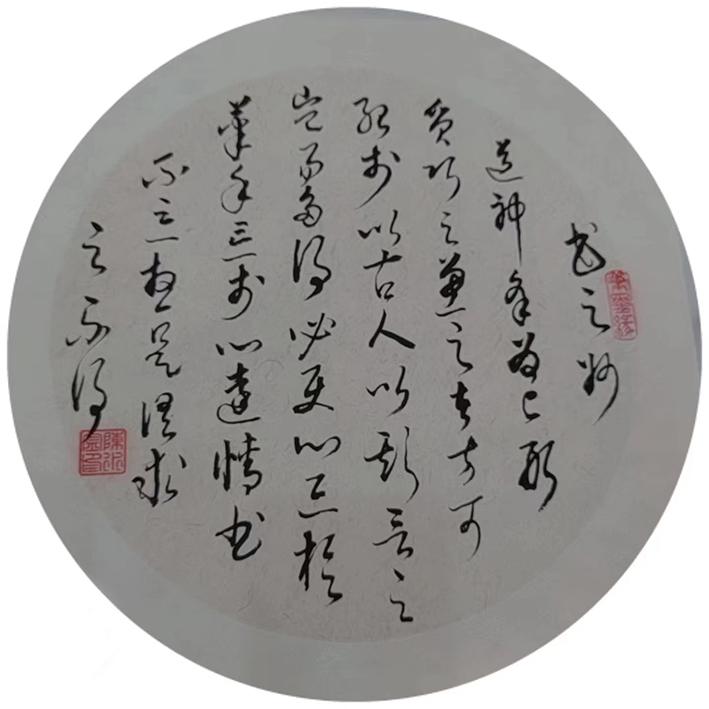 書之妙
道神采為上形
質次之兼之者方可
紹於以古人以斯言之
豈易多得必使心忘於
筆手忘於心達情書
不忘想是謂求
之不得